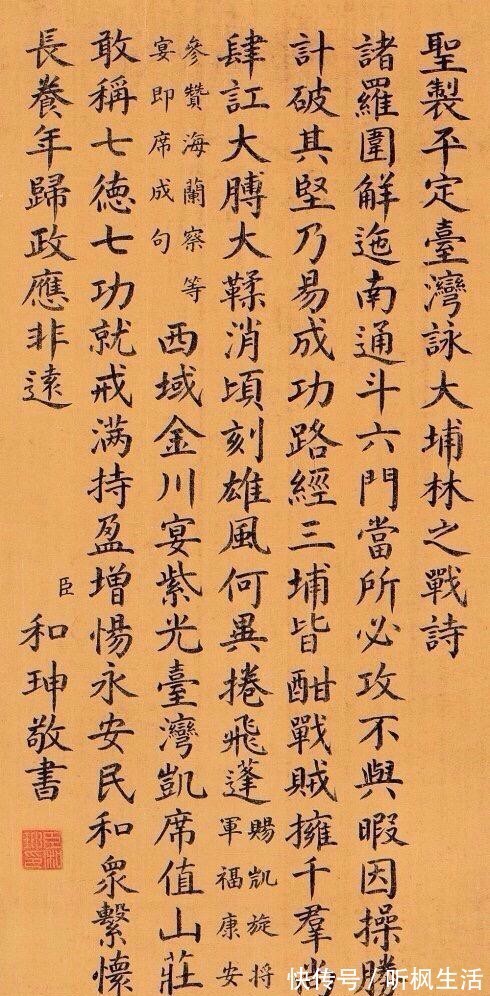 聖製平定臺灣詠大埔林之戰詩
諸羅圍解迤南通斗六門當所必攻不與暇因操勝
計破其堅乃易成功路經三埔皆酣戰賊擁千羣
肆訌大膊大鞣消頃刻雄風何異捲飛蓬
賜凱旋將
軍福康安
參贊海蘭察等
宴即席成句
西域金川宴紫光臺灣凱席值山莊
敢稱七德七功就戒满持盈增惕永安民和衆繫懷
長養年歸政應非遠
臣和珅敬書
快传号/听枫生活